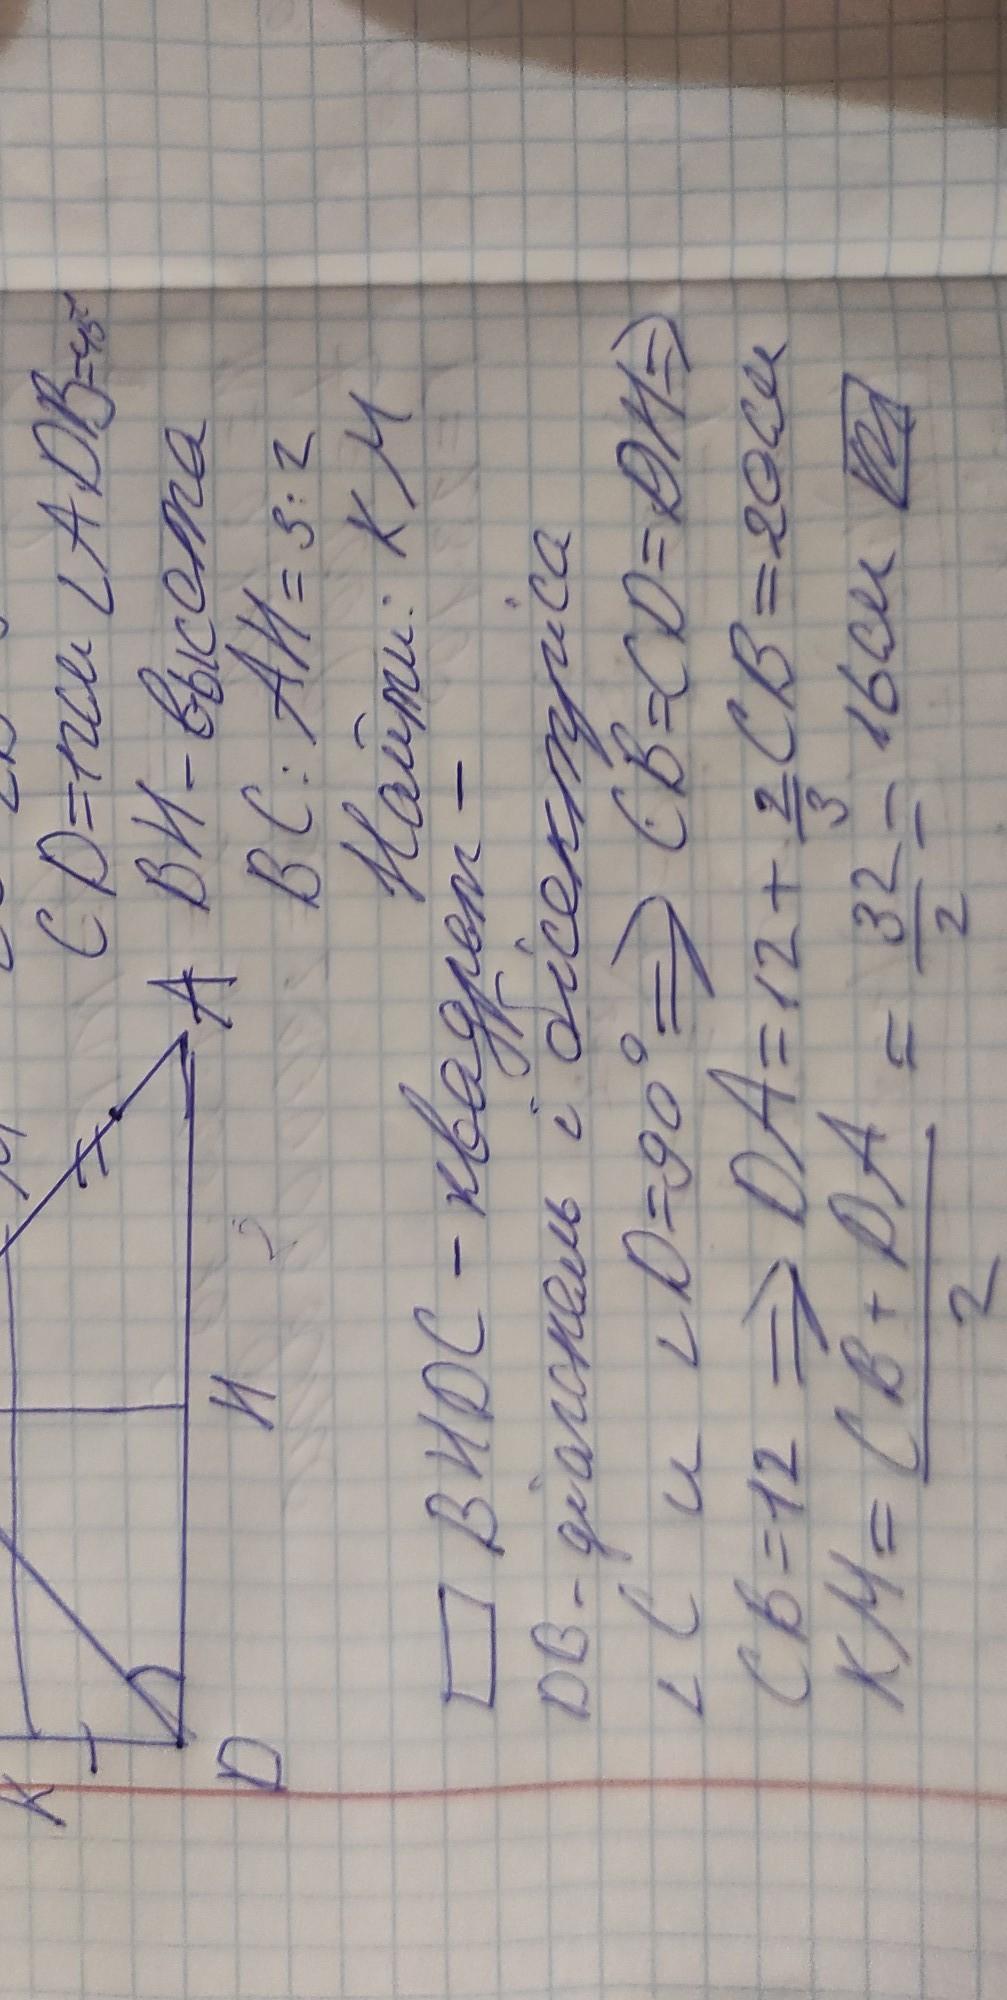 K
D
H
A
CD=12см ∠ADB=45°
BH-высота
BC:AH=3:2
Найти: KM
BHDC - квадрат -
DB-діагональ і бісектриса
∠C и ∠D=90° => CB=CD=DH=>
CB=12 => DA=12+2/3CB=20см
KM=(CB+DA)/2=32/2=16см